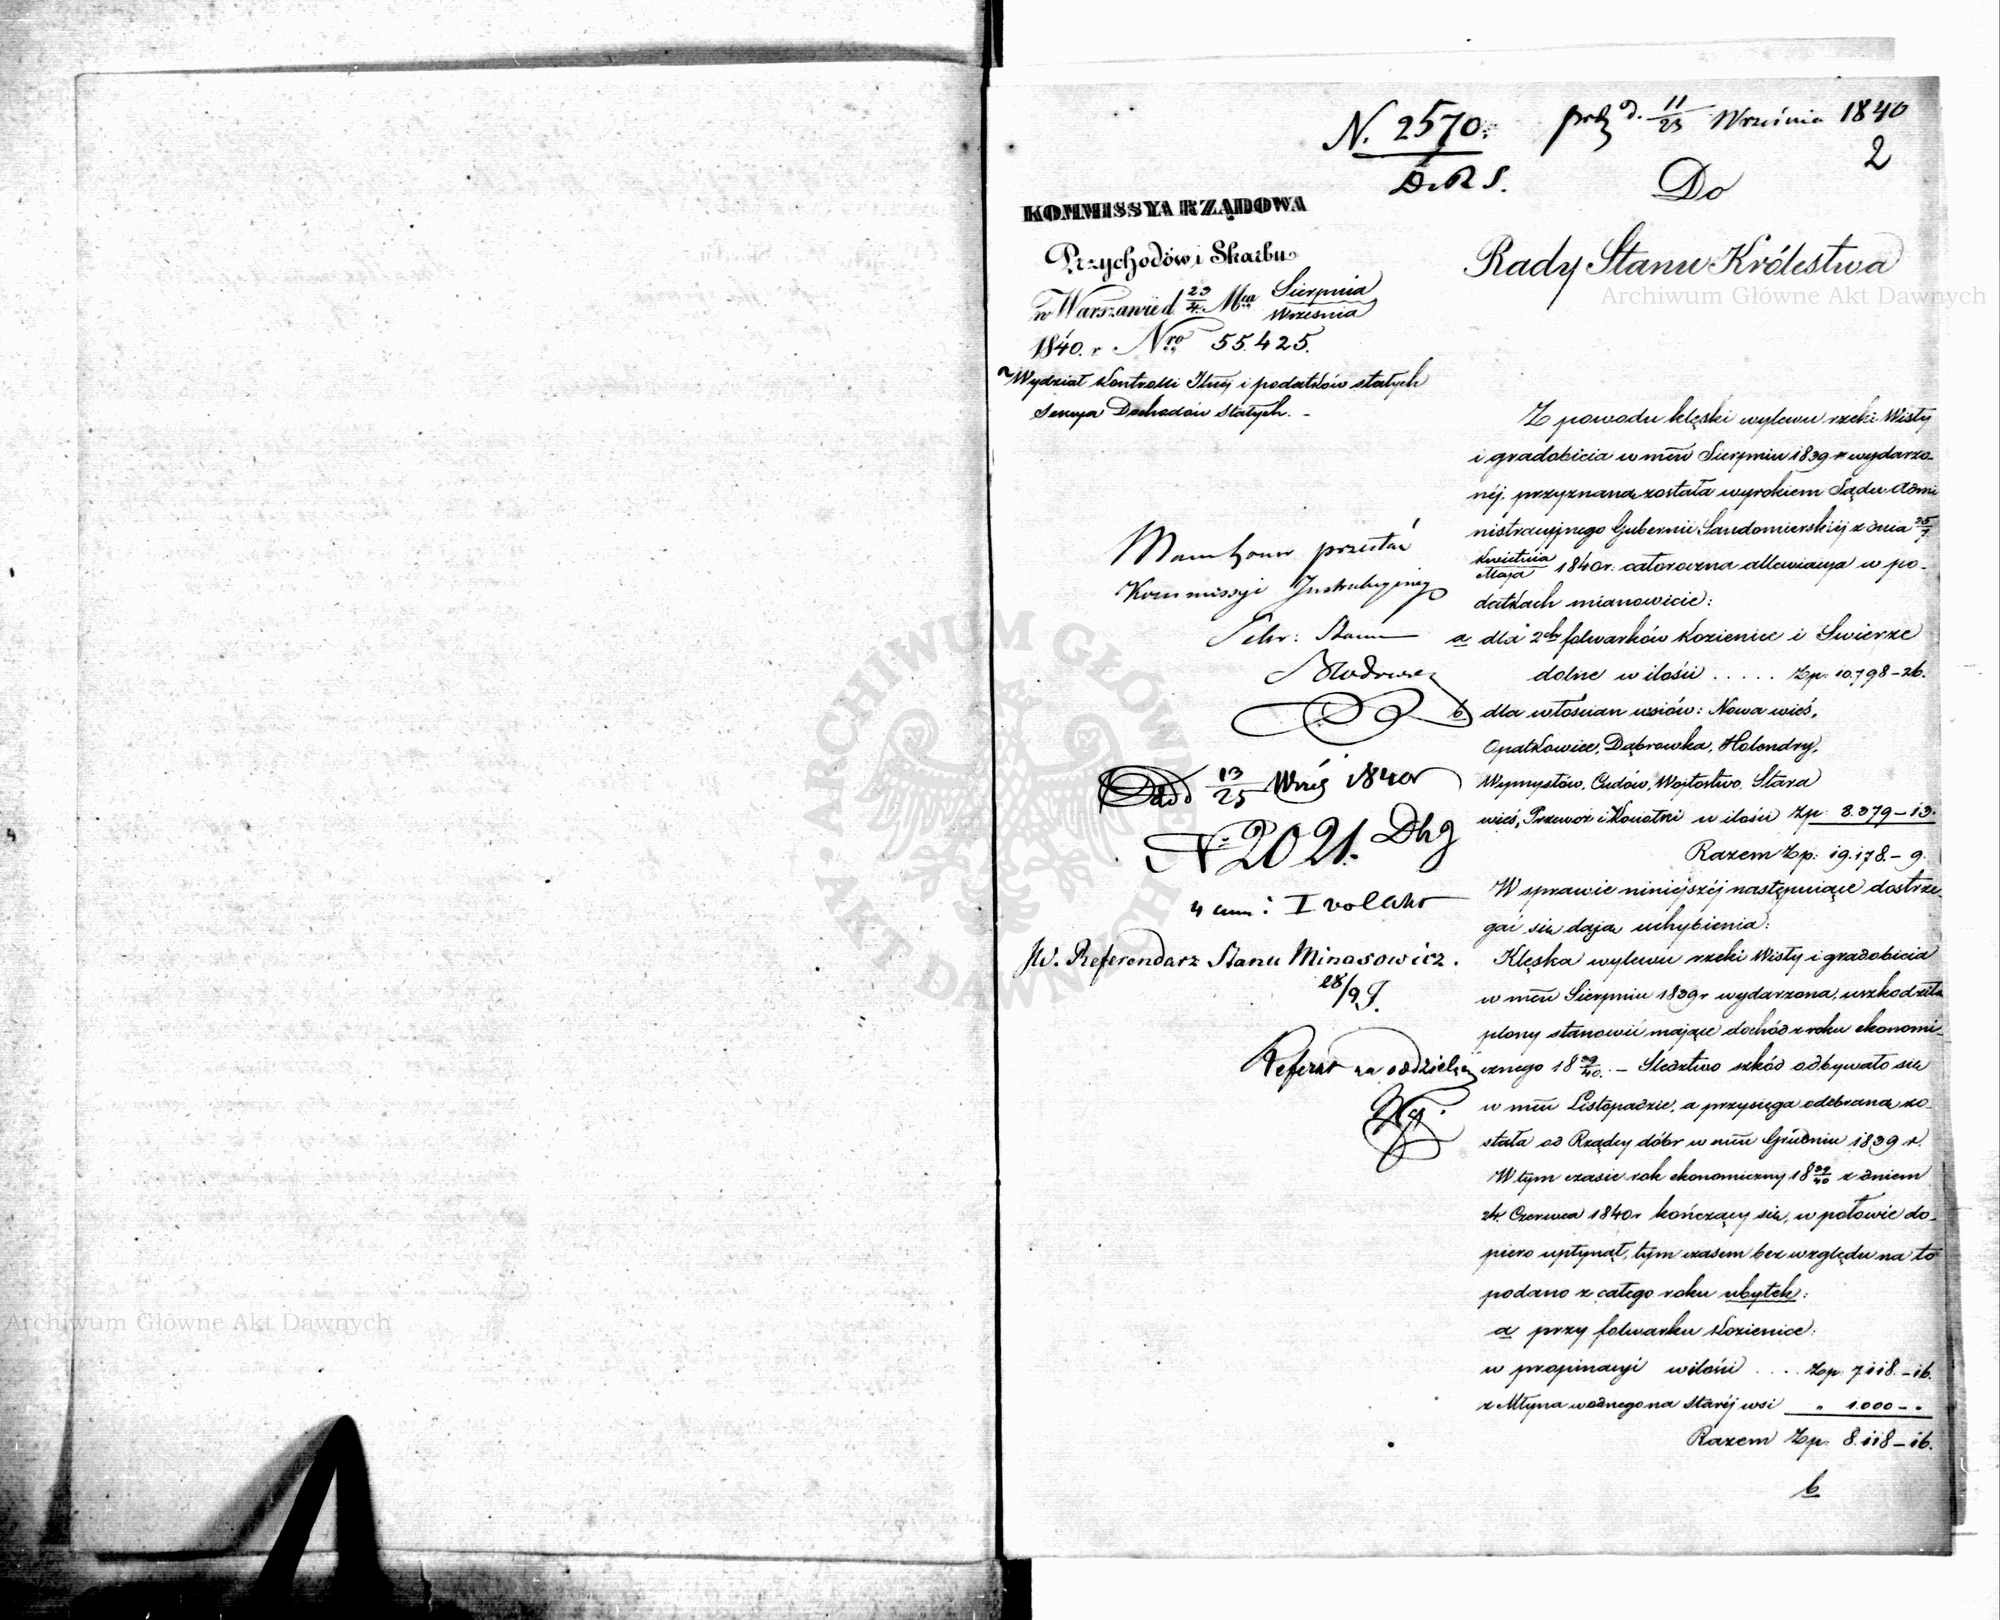 N. 2570. prz d. 11/23 Września 1840
2
D. R S.
Do
KOMMISSYA RZĄDOWA
Przychodów i Skarbu
w Warszawie d 23/4 Mca Sierpnia/Września
1840. r. Nro 55.425.
Wydział Kontrolli Ilnej i podatków stałych
Sekcya Dochodów Stałych. -
Rady Stanu Królestwa
Z powodu klęski wylewu rzeki Wisły
i gradobicia w mcu Sierpniu 1839 r wydarzo-
néj, przyznaną została wyrokiem Sądu Admi
nistracyjnego Gubernii Sandomierskiéj z dnia 25/7
Kwietnia/Maja 1840 r. całoroczna allewiacya w po-
datkach mianowicie:
a dla 2ch folwarków Kozienice i Swierze
dolne w ilości . . . . . Zp. 10.798 - 26.
b. dla włościan wsiów: Nowa wieś,
Opatkowice, Dąbrowka, Holendry,
Wymysłów, Cudów, Wójtostwo, Stara
wieś, Przewoz i Kociołki w ilości Zp. 8.379 - 13.
Razem Zp. 19.178. - 9.
W sprawie niniejszéj następujące dostrze-
gać się dają uchybienia:
Klęska wylewu rzeki Wisły i gradobicia
w mcu Sierpniu 1839 r wydarzona, uszkodziła
plony stanowić mające dochód z roku ekonomi-
cznego 18 39/40. - Sledztwo szkód odbywało się
w mcu Listopadzie, a przysięga odebraną zo-
stała od Rządcy dóbr w mcu Grudniu 1839 r.
W tym czasie rok ekonomiczny 18 39/40 z dniem
24. Czerwca 1840 r kończący się, w połowie do-
piero upłynął, tym czasem bez względu na to
podano z całego roku ubytek:
a przy folwarku Kozienice:
w propinacyi w ilości . . . . Zp. 7.118. - 16.
z Młyna wodnego na Staréj wsi „ 1.000 - „
Razem Zp. 8.118 - 16.
b
Mam honor przesłać
Kommissyi Instrukcyjnéj
Sekr: Stanu
13/25 Wrześ 1840 r
N. 2021. Dhg
4 ann: I vol
JW. Referendarz Stanu Minasowicz.
28/9 J.
Referat na oddzielnéj
Archiwum Główne Akt Dawnych
ARCHIWUM GŁÓWNE AKT DAWNYCH
Archiwum Główne Akt Dawnych